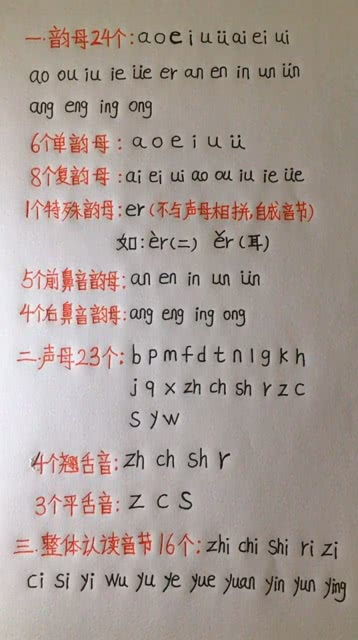 一.韵母24个:a o e i u ü ai ei ui
ao ou iu ie üe er an en in un ün
ang eng ing ong
6个单韵母:a o e i u ü
8个复韵母:ai ei ui ao ou iu ie üe
1个特殊韵母:er(不与声母相拼,自成音节)
如:èr(二) ěr(耳)
5个前鼻音韵母:an en in un ün
4个后鼻音韵母:ang eng ing ong
二.声母23个:b p m f d t n l g k h
j q x zh ch sh r z c
s y w
4个翘舌音:zh ch sh r
3个平舌音:z c s
三.整体认读音节16个:zhi chi shi ri zi
ci si yi wu yu ye yue yuan yin yun ying